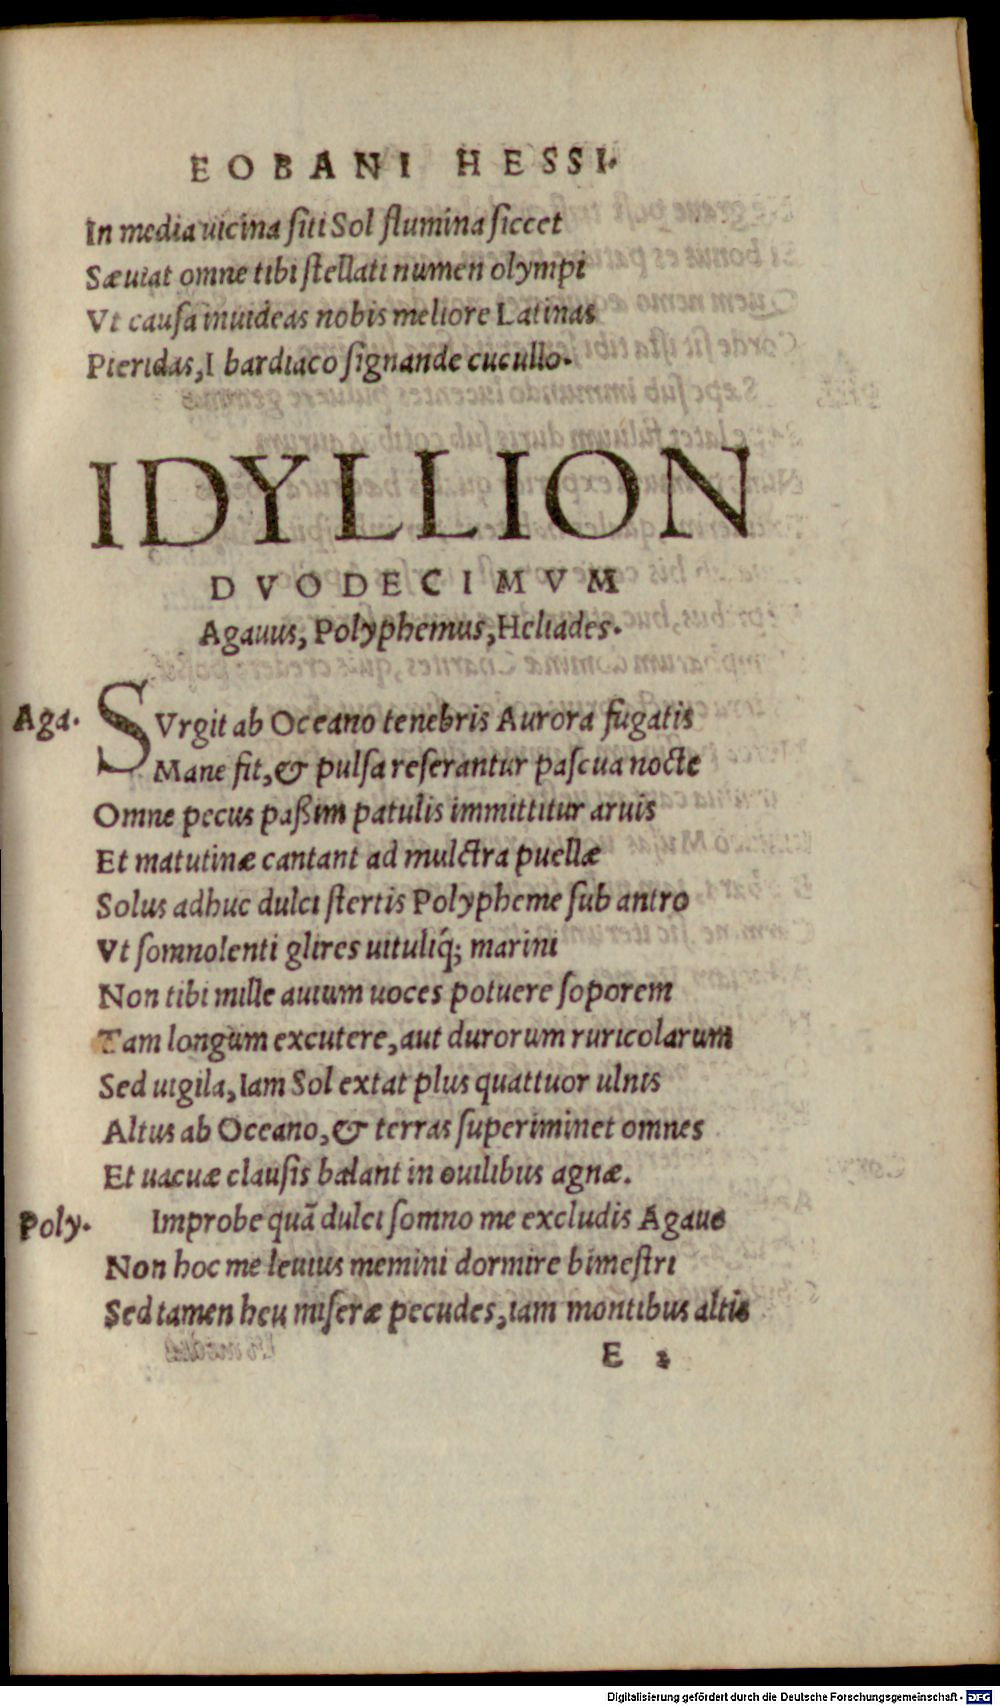 EOBANI HESSI.
In media uicina siti Sol flumina siccet
Sæuiat omne tibi stellati numen olympi
Vt causa inuideas nobis meliore Latinas
Pieridas, I bardiaco signande cucullo.
IDYLLION
DVODECIMVM
Agauus, Polyphemus, Heliades.
Aga. SVrgit ab Oceano tenebris Aurora fugatis
Mane fit, & pulsa reserantur pascua nocte
Omne pecus paßim patulis immittitur aruis
Et matutinæ cantant ad mulctra puellæ
Solus adhuc dulci stertis Polypheme sub antro
Vt somnolenti glires uituliq́; marini
Non tibi mille auium uoces potuere soporem
Tam longum excutere, aut durorum ruricolarum
Sed uigila, Iam Sol extat plus quattuor ulnis
Altus ab Oceano, & terras superiminet omnes
Et uacuæ clausis balant in ouilibus agnæ.
Poly. Improbe quã dulci somno me excludis Agaue
Non hoc me leuius memini dormire bimestri
Sed tamen heu miseræ pecudes, iam montibus altis
E 2
Digitalisierung gefördert durch die Deutsche Forschungsgemeinschaft - DFG